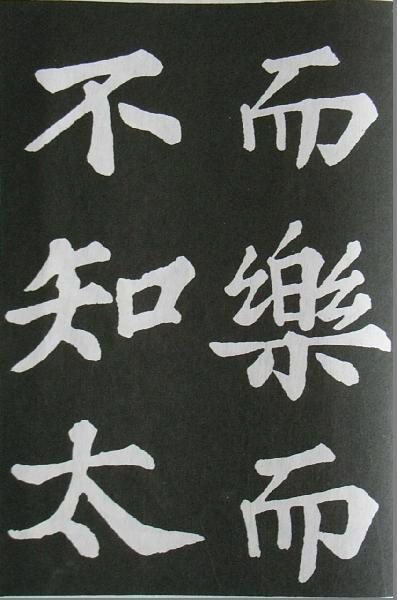 而樂而
不知太